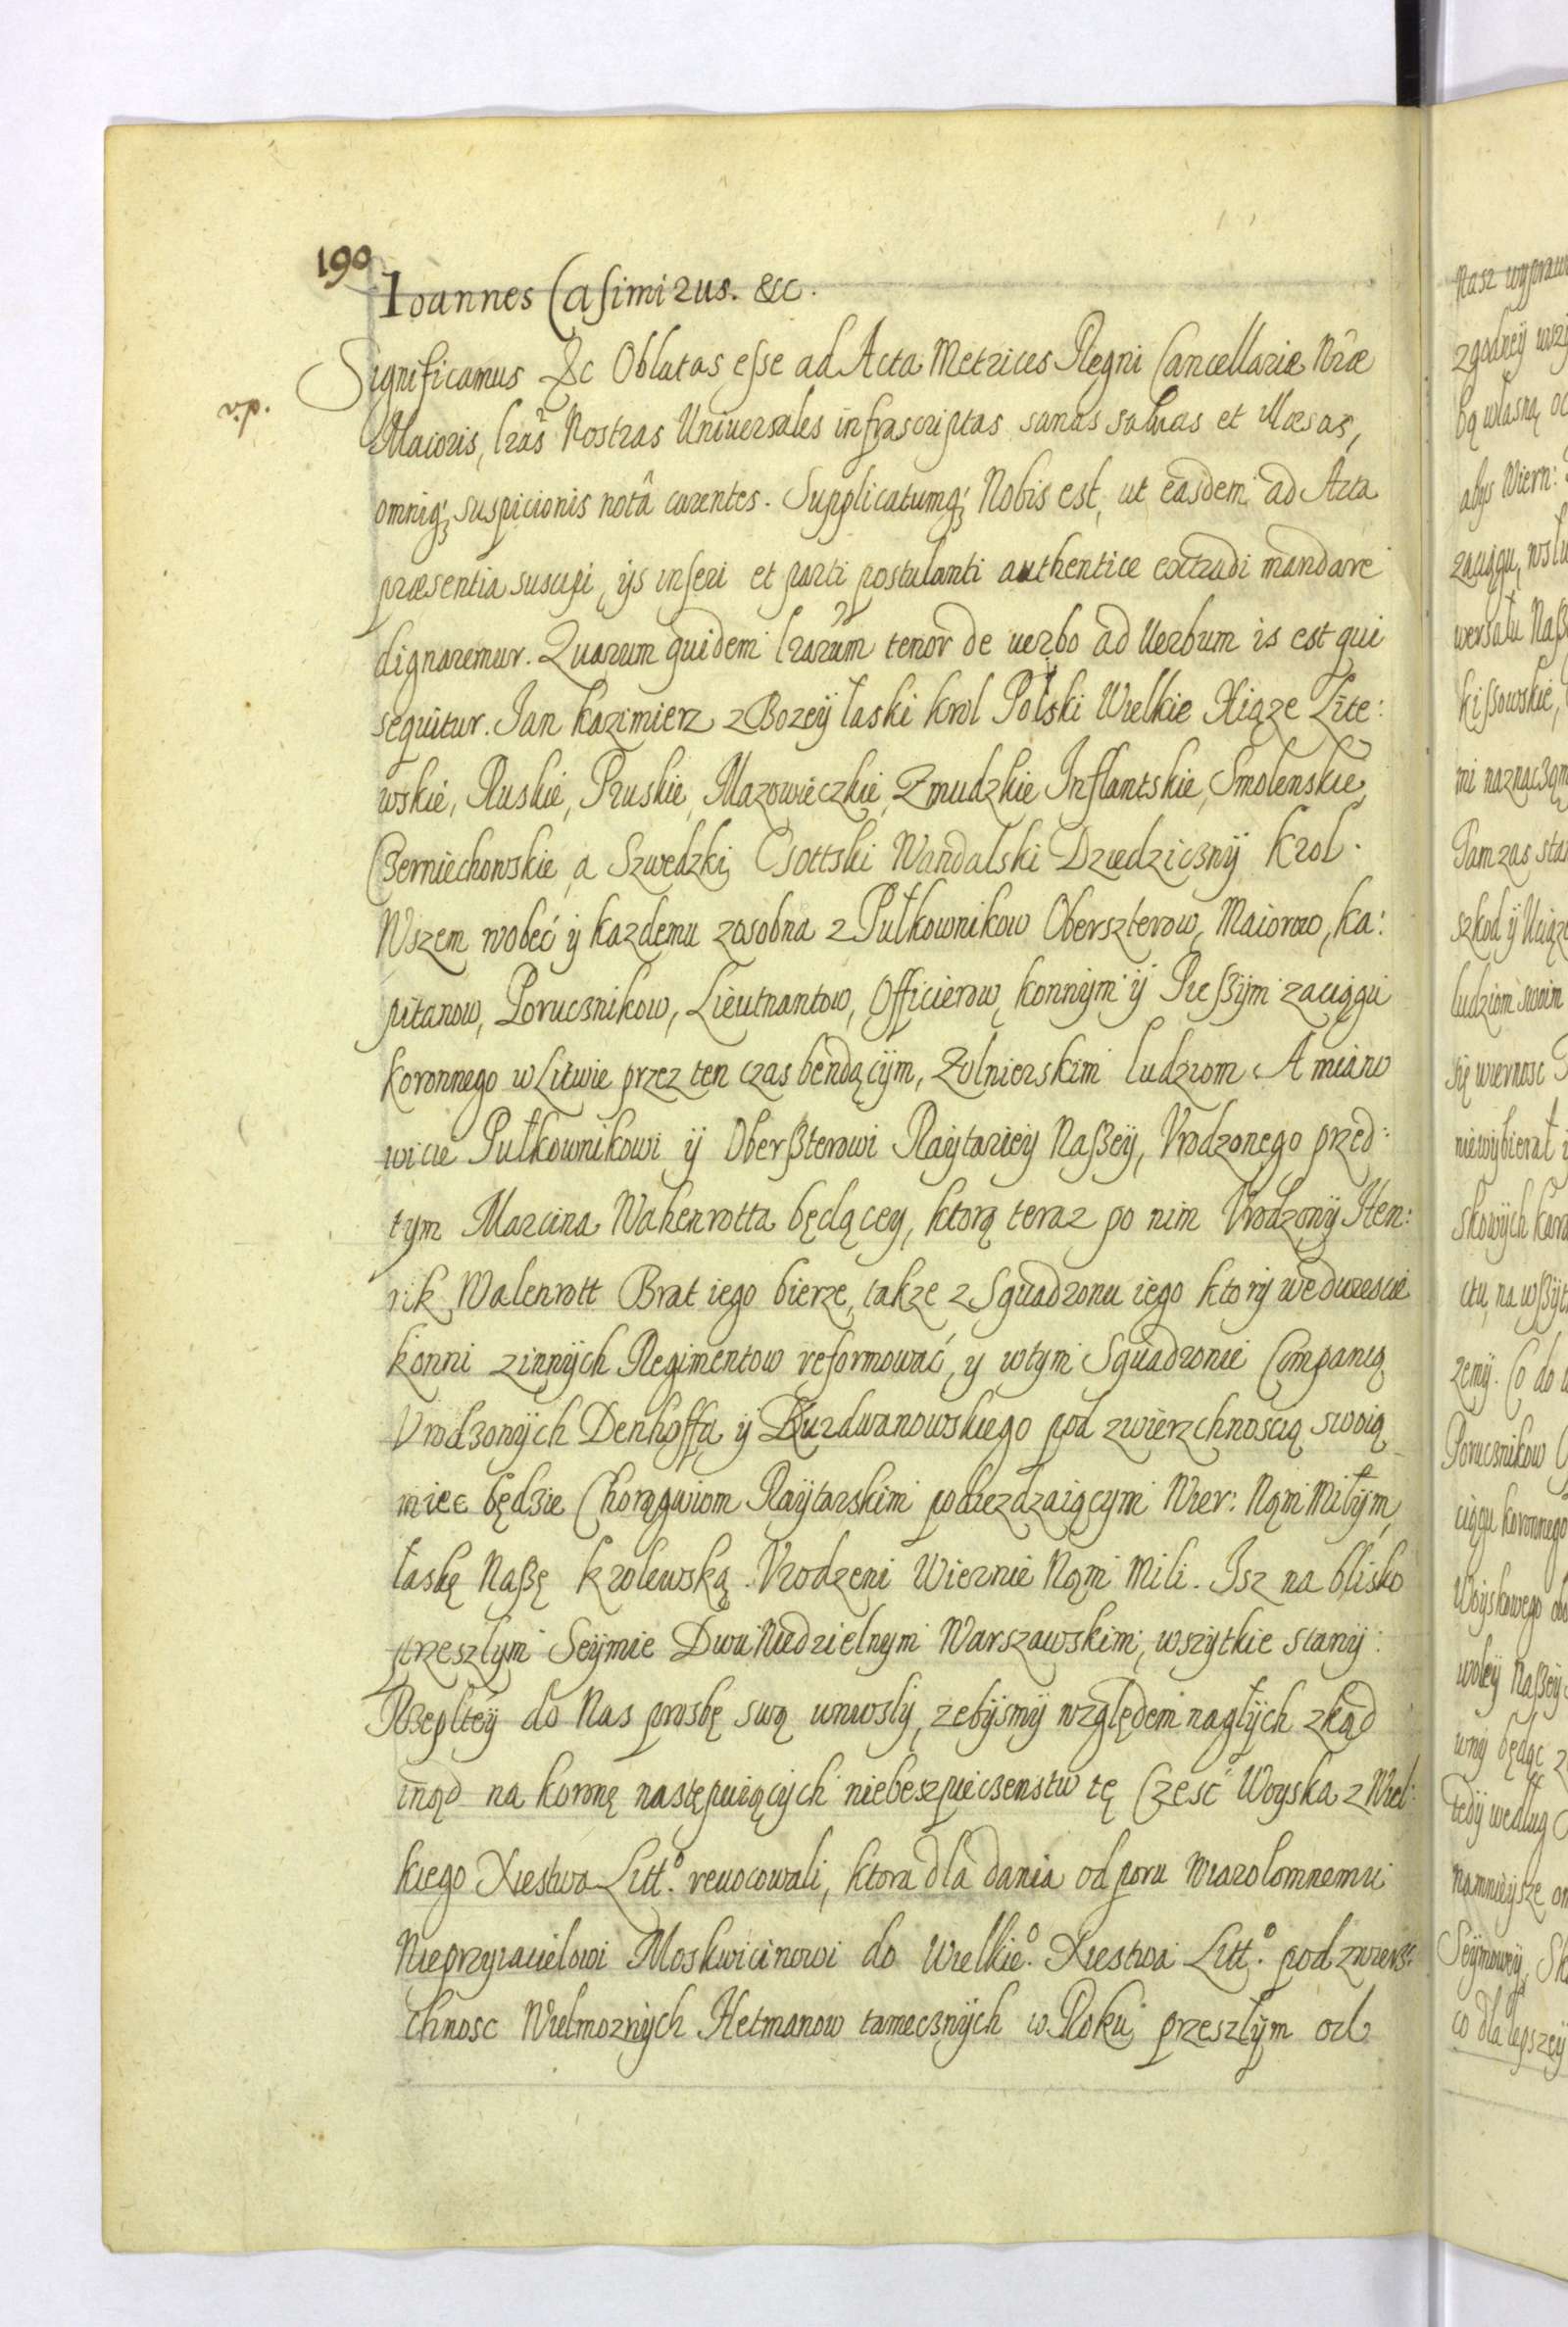 190
Ioannes Casimirus. &c.
Significamus &c Oblatas esse ad Acta Metrices Regni Cancellariæ Nr̃æ
Maioris, Lras̃ Nostras Uniuersales infrascriptas sanas saluas et illæsas,
omniq́; suspicionis notâ carentes. Supplicatumq́; Nobis est, ut easdem ad Acta
præsentia suscipi, ijs inseri et parti postulanti authentice extradi mandare
dignaremur. Quarum quidem Lrarũm tenor de uerbo ad Uerbum is est qui
sequitur. Jan Kazimierz z Bozeÿ łaski krol Polski Wielkie Xiąze Lite:
wskie, Ruskie, Pruskie, Mazowieczkie, Zmudzkie Inflantskie, Smolenskie,
Czerniechowskie, a Szwedzki, Gottski Wandalski Dziedzicznÿ Krol.
Wszem wobeć ÿ kazdemu zosobna z Pułkownikow Oberszterow, Maiorow, ka:
pitanow, Porucznikow, Lieutnantow, Officierow, konnÿm ÿ Pießÿm zaciągu
koronnego w Litwie przez ten czas bendącÿm, Zolnierskim ludziom A mianw
wicie Pułkownikowi ÿ Oberßterowi Raÿtarieÿ Naßeÿ, Vrodzonego przed:
tym Marcina Wahenrotta będącey, ktorą teraz po nim Vrodzonÿ Hen:
rik Walenrott Brat iego bierze, takze z Sguadronu iego ktorÿ we dwiescie
konni zinnÿch Regimentow reformować, y wtym Sguadronie Companią
Vrodzonÿch Denhoffa ÿ Burdwanowskiego pod zwierzchnoscią swoią
miec będzie Chorągwiom Raÿtarskim podiezdzaiącymi Wier: Nąm Miłÿm,
łaskę Naßę krolewską. Vrodzeni Wiernie Nąm Mili. Isz na blisko
przeszlym Seÿmie Dwu Niedzielnym Warszawskim, wszÿtkie stanÿ
Rzepltéÿ do Nas prosbę swą wniosly, zebÿsmÿ względem nagłÿch zkąd
inąd na koronę następuiącÿch niebeszpieczenstw tę Częsć Woyska z Wiel:
kiego Xiestwa Litt.º reuocowali, ktora dla dania odporu wiarolomnemu
Nieprzyiacielowi Moskwicinowi do Wielkie.º Xiestwa Litt.º pod zwierz:
chnosc Wielmoznÿch Hetmanow tamecznÿch w Roku przeszłÿm od